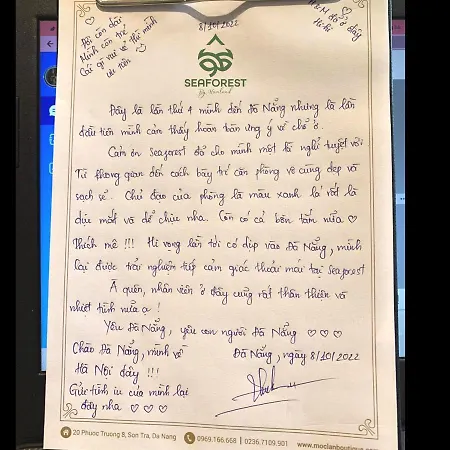 Đời còn dài
Mình còn trẻ
Cái gì vui vẻ thì mình
ưu tiên
8/10/2022
đồ ở đây
Hihi
SEAFOREST
By Moclan
Đây là lần thứ 4 mình đến Đà Nẵng nhưng là lần
đầu tiên mình cảm thấy hoàn toàn ưng ý về chỗ ở.
Cảm ơn Seaforest đã cho mình một kì nghỉ tuyệt vời
Từ không gian đến cách bày trí căn phòng vô cùng đẹp và
sạch sẽ. Chủ đạo của phòng là màu xanh lá rất là
dịu mắt và dễ chịu nha. Còn có cả bồn tắm nữa ♡
Thích mê !!! Hi vọng lần tới có dịp vào Đà Nẵng, mình
lại được trải nghiệm tiếp cảm giác thoải mái tại Seaforest
À quên, nhân viên ở đây cũng rất thân thiện và
nhiệt tình nữa ạ !
Yêu Đà Nẵng, yêu con người Đà Nẵng ♡ ♡ ♡
Chào Đà Nẵng, mình về
Hà Nội đây !!!
Đà Nẵng, ngày 8/10/2022
Gửi tình iu của mình lại
đây nha ♡ ♡ ♡
20 Phuoc Truong 8, Son Tra, Da Nang | 0969.166.668 | 0236.7109.901 www.moclanboutique